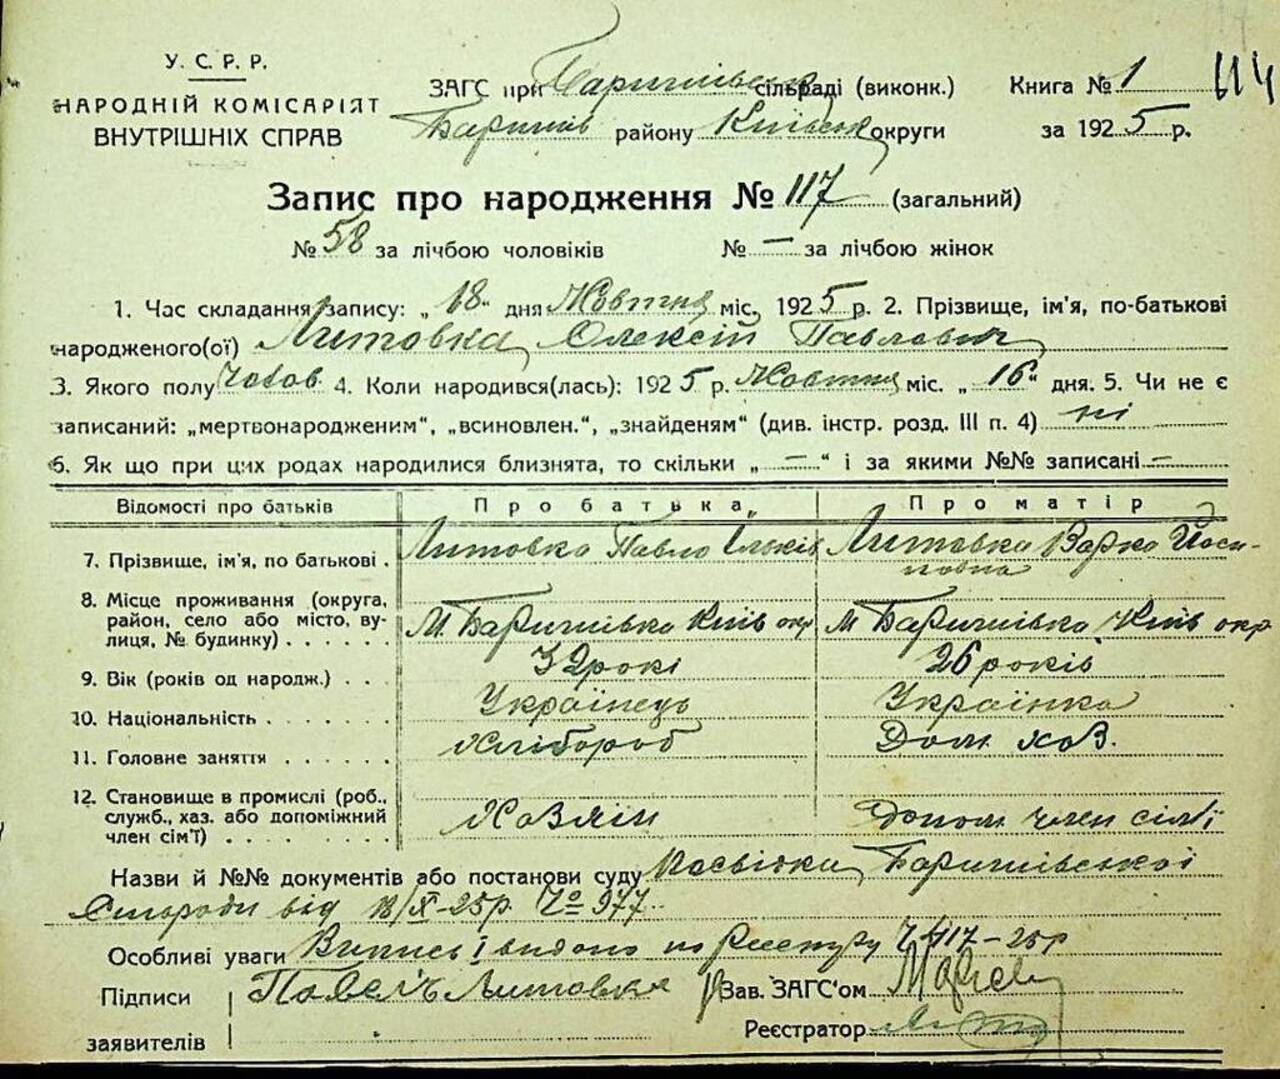 У. С. Р. Р.
НАРОДНІЙ КОМІСАРІЯТ
ВНУТРІШНІХ СПРАВ
ЗАГС при Баришівськ сільраді (виконк.)
Баришів району Київськ округи
Книга № 1
за 1925 р.
Запис про народження № 117 (загальний)
№ 58 за лічбою чоловіків № — за лічбою жінок
1. Час складання запису: „18“ дня Жовтня міс. 1925 р. 2. Прізвище, ім'я, по-батькові
народженого(ої) Литовка, Олексій Павлович
3. Якого полу Чолов 4. Коли народився(лась): 1925 р. Жовтня міс. „16“ дня. 5. Чи не є
записаний: „мертвонародженим“, „всиновлен.“, „знайденям“ (див. інстр. розд. III п. 4) ні
6. Як що при цих родах народилися близнята, то скільки „—“ і за якими №№ записані —
Відомості про батьків Про батька Про матір
7. Прізвище, ім'я, по батькові . Литовка Павло Ільків Литовка Варка Йоси-
повна
8. Місце проживання (округа,
район, село або місто, ву-
лиця, № будинку) . . . . . . М. Баришівка Київ окр М Баришівка Київ окр
9. Вік (років од народж.) . . . 32 рокі 26 років
10. Національність . . . . . . . Українець Українка
11. Головне заняття . . . . . . Хлібороб Дом. хоз.
12. Становище в промислі (роб.,
служб., хаз. або допоміжний
член сім'ї) . . . . . . . . . Хозяїн Допом. член сім'ї
Назви й №№ документів або постанови суду Посвідка Баришівської
Сільради від 18/X-25р. № 977
Особливі уваги Випись і видано по Реєстру № 417-25р
Підписи Павелъ Литовка Зав. ЗАГС'ом
заявителів Реєстратор